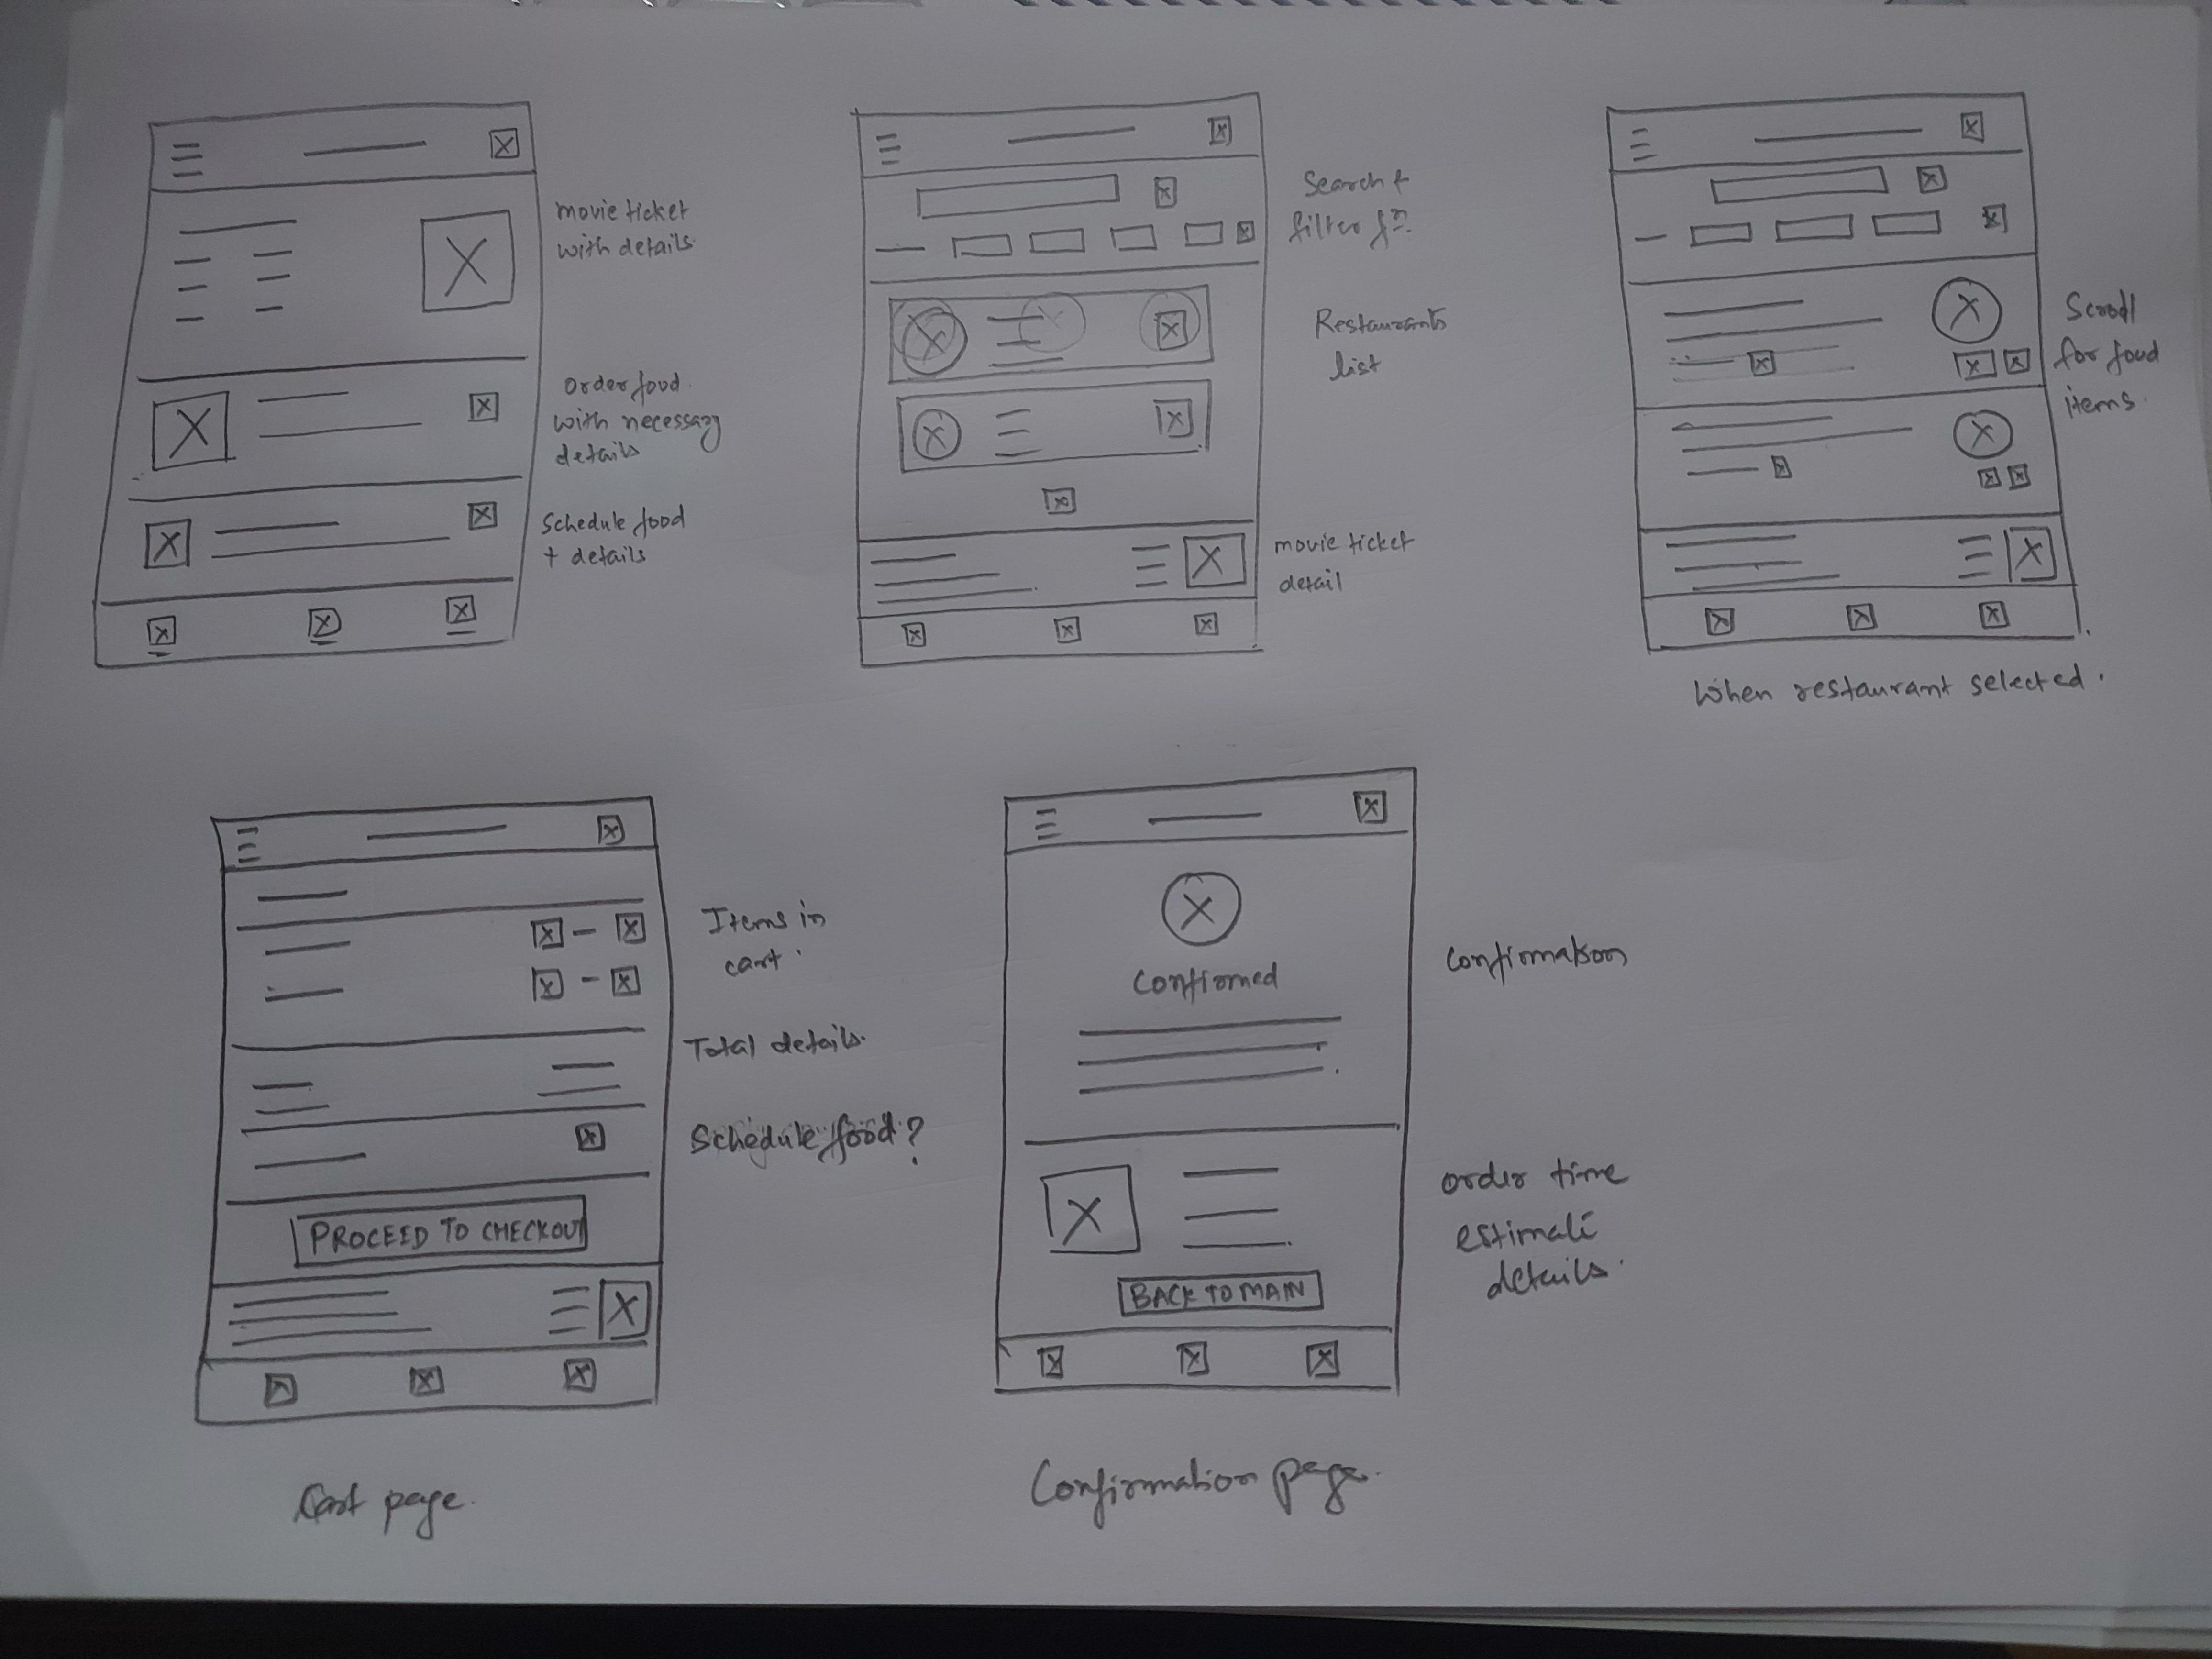 movie ticket
with details
Order food
with necessary
details
Schedule food
+ details
Search +
filter fn.
Restaurants
list
movie ticket
detail
Scroll
for food
items.
When restaurant selected.
Items in
cart.
Total details.
Schedule food?
PROCEED TO CHECKOUT
Cart page.
Confirmed
Confirmation
order time
estimate
details.
BACK TO MAIN
Confirmation page.